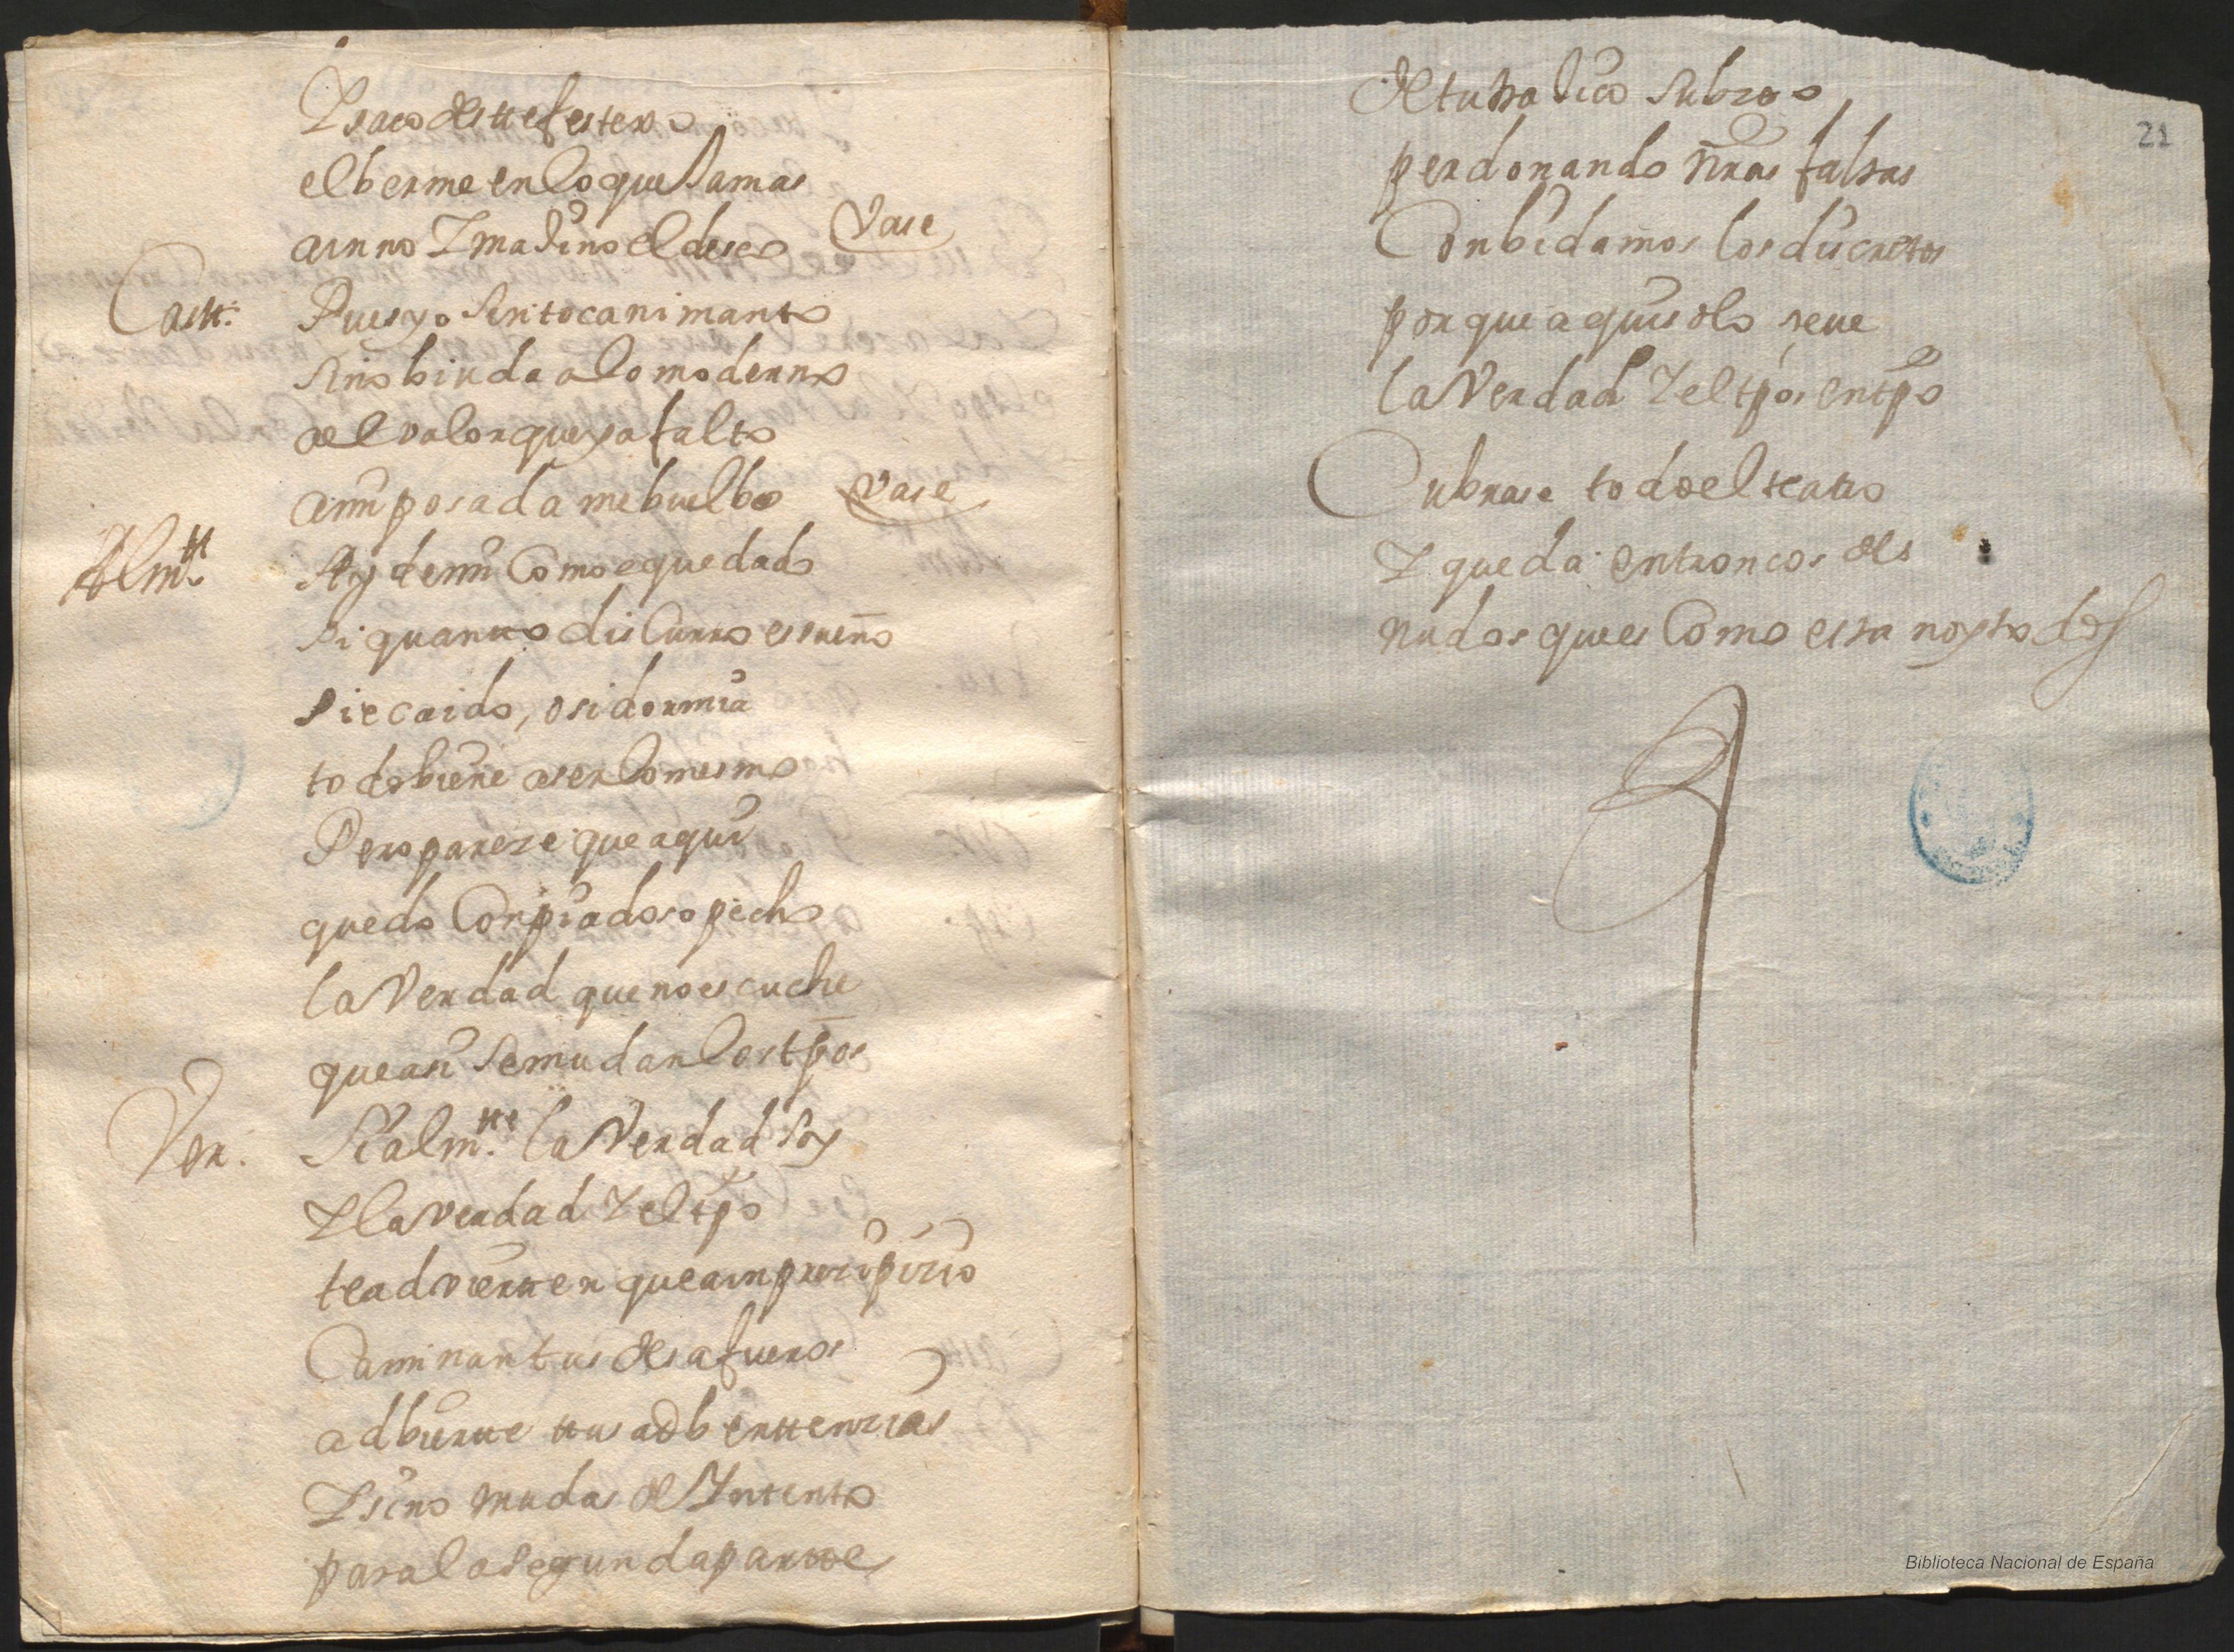 Y saco deste festexo
el berme en lo que Jamas
ainno Ymajino el deseo Vase
Castt. Pues yo sin toca ni manto
sino biuda a lo moderno
del valor que ya falto
a mi posada me buelbo vase
Almtt. Ay de mi Como e quedado
si quanto discurro es sueño
si e caido, o si dormia
todo biene a ser lo mesmo
Pero pareze que aqui
quedo Con piadoso pecho
la Verdad que no escuche
que asi se mudan los tpos
Ver. Si almtte. la Verdad soy
Y la verdad Y el tpo
te advierten que a un prezipizio
Caminan tus desafueros
adbierte tus adbertenzias
Y si no mudas de Yntento
para la segunda partte
De tu trajico subzeso
perdonando nras faltas
Conbidamos los discretos
porque aqui solo se ve
la Verdad Y el tpo, en tpo
Cubrase todo el teatro
Y queda en troncos des
nudos que es Como esta noy todo
21
Biblioteca Nacional de España